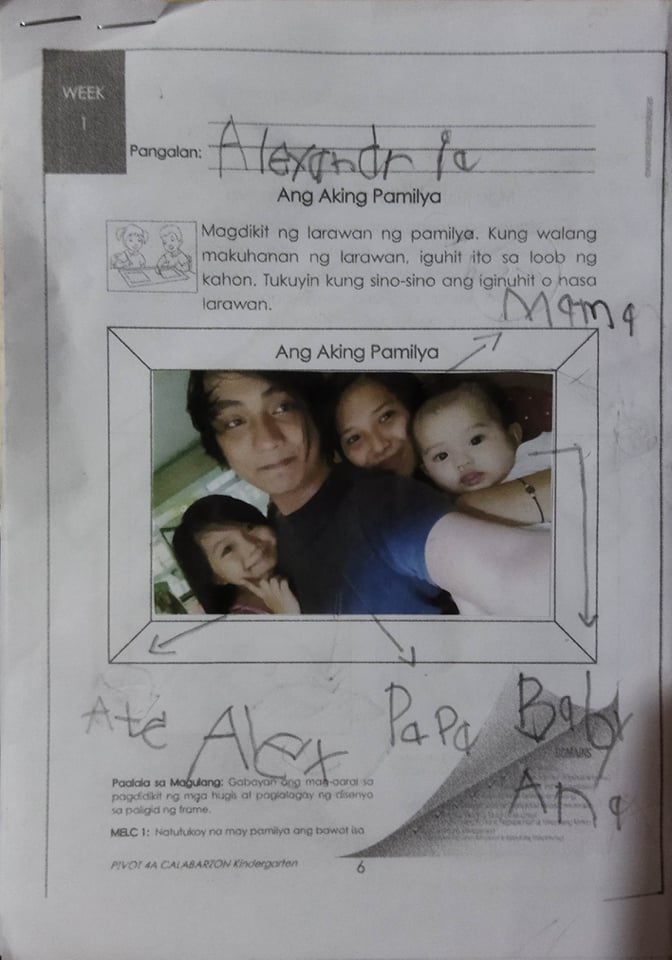 WEEK
1
Pangalan: Alexandria
Ang Aking Pamilya
Magdikit ng larawan ng pamilya. Kung walang
makuhanan ng larawan, iguhit ito sa loob ng
kahon. Tukuyin kung sino-sino ang iginuhit o nasa
larawan.
Mama
Ang Aking Pamilya
Ate Alex
Papa
Baby
Ana
Paalala sa Magulang: Gabayan ang mag-aaral sa
pagdidikit ng mga hugis at paglalagay ng disenyo
sa paligid ng frame.
MELC 1: Natutukoy na may pamilya ang bawat isa
PIVOT 4A CALABARZON Kindergarten
6